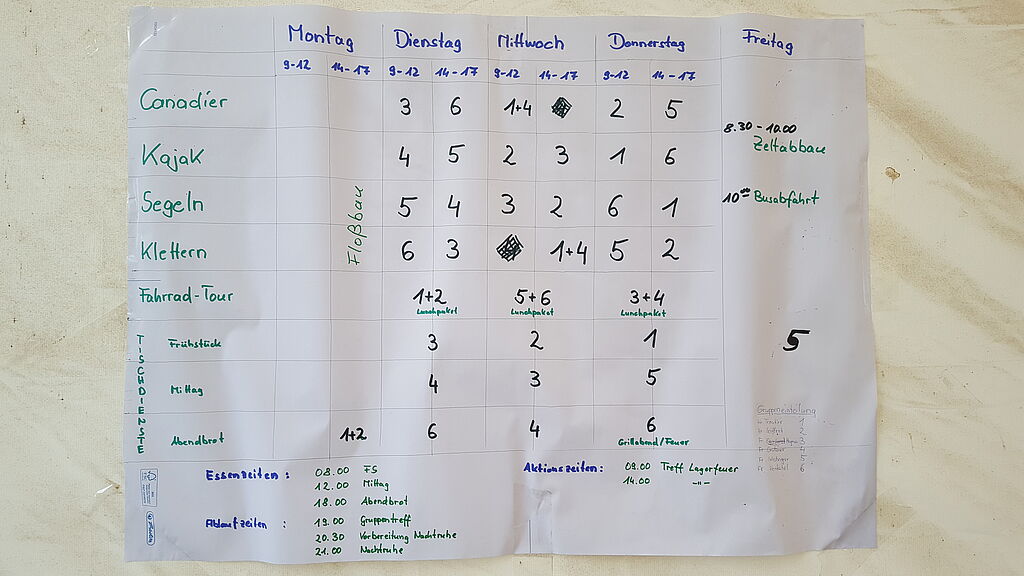 Montag Dienstag Mittwoch Donnerstag Freitag
9-12 14-17 9-12 14-17 9-12 14-17 9-12 14-17
Canadier 3 6 1+4 2 5
8.30 - 10.00
Zeltabbau
Kajak 4 5 2 3 1 6
Segeln 5 4 3 2 6 1
10⁰⁰ Busabfahrt
Floßbau
Klettern 6 3 1+4 5 2
Fahrrad-Tour 1+2 5+6 3+4
Lunchpaket Lunchpaket Lunchpaket
TISCHDIENSTE
Frühstück 3 2 1 5
Mittag 4 3 5
Abendbrot 1+2 6 4 6
Grillabend/Feuer
Gruppeneinteilung
Fr 1
Fr 2
Fr 3
Fr 4
Fr 5
Fr 6
Essenzeiten: 08.00 FS
12.00 Mittag
18.00 Abendbrot
Ablaufzeiten: 19.00 Gruppentreff
20.30 Vorbereitung Nachtruhe
21.00 Nachtruhe
Aktionszeiten: 09.00 Treff Lagerfeuer
14.00 -"-